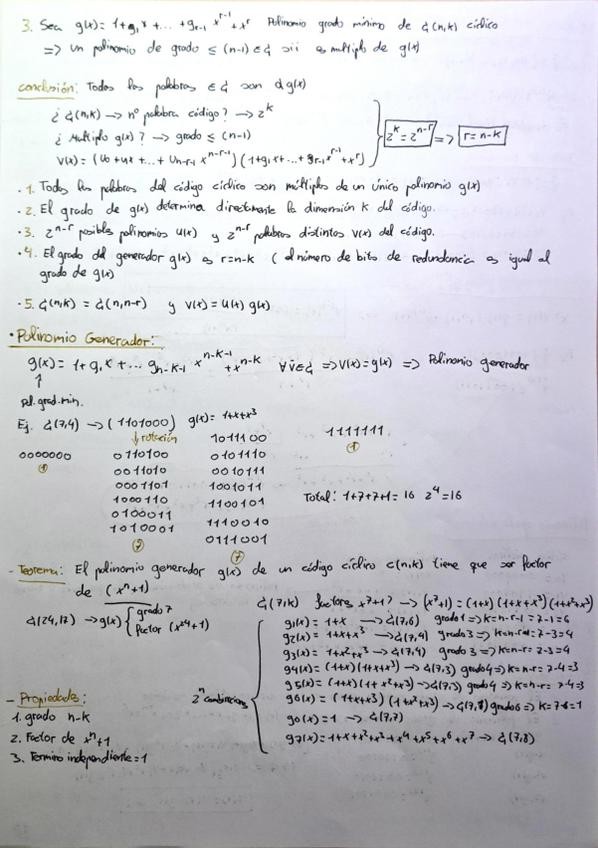 3. Sea g(x) = 1+g₁x+...+gr-1 x^r-1+x^r Polinomio grado mínimo de C(n,k) cíclico
=> un polinomio de grado ≤ (n-1) ∈ C sii es multiplo de g(x)
conclusión: Todas las palabras ∈ C son d g(x)
¿ C(n,k) → nº palabra código? → 2^k
¿ Multiplo g(x)? → grado ≤ (n-1)
V(x) = (U0+U1x+...+Un-r-1 x^n-r-1)(1+g₁x+...+gr-1 x^r-1+x^r)
2^k = 2^n-r => r = n-k
· 1. Todas las palabras del código cíclico son múltiplos de un único polinomio g(x)
· 2. El grado de g(x) determina directamente la dimensión k del código.
· 3. 2^n-r posibles polinomios u(x) y 2^n-r palabras distintas V(x) del código.
· 4. El grado del generador g(x) es r=n-k ( el número de bits de redundancia es igual al
grado de g(x)
· 5. C(n,k) = C(n,n-r) y V(x) = U(x) g(x)
· Polinomio Generador:
g(x) = 1+g₁x+... gn-k-1 x^n-k-1+x^n-k ∀v∈C => V(x)=g(x) => Polinomio generador
↑
Pol. grad. min.
Ej. C(7,4) → (1101000) g(x) = 1+x+x³
↓ rotación
0000000
1
0110100
0011010
0001101
1000110
0100011
1010001
7
1011100
0101110
0010111
1001011
1100101
1110010
0111001
7
1111111
1
Total: 1+7+7+1 = 16 2⁴=16
- Teorema: El polinomio generador g(x) de un código cíclico c(n,k) tiene que ser factor
de (x^n+1)
C(24,17) → g(x) { grado 7
factor (x²⁴+1)
C(7,k) factores x⁷+1? → (x⁷+1) = (1+x)(1+x+x³)(1+x²+x³)
2^n combinaciones
g1(x) = 1+x → C(7,6) grado 1 => k=n-r = 7-1=6
g2(x) = 1+x+x³ → C(7,4) grado 3 => k=n-r = 7-3=4
g3(x) = 1+x²+x³ → C(7,4) grado 3 => k=n-r = 7-3=4
g4(x) = (1+x)(1+x+x³) → C(7,3) grado 4 => k=n-r = 7-4=3
g5(x) = (1+x)(1+x²+x³) → C(7,3) grado 4 => k=n-r = 7-4=3
g6(x) = (1+x+x³)(1+x²+x³) → C(7,1) grado 6 => k=7-6=1
g0(x) = 1 → C(7,7)
g7(x) = 1+x+x²+x³+x⁴+x⁵+x⁶+x⁷ → C(7,8)
- Propiedades:
1. grado n-k
2. Factor de x^n+1
3. Termino independiente = 1